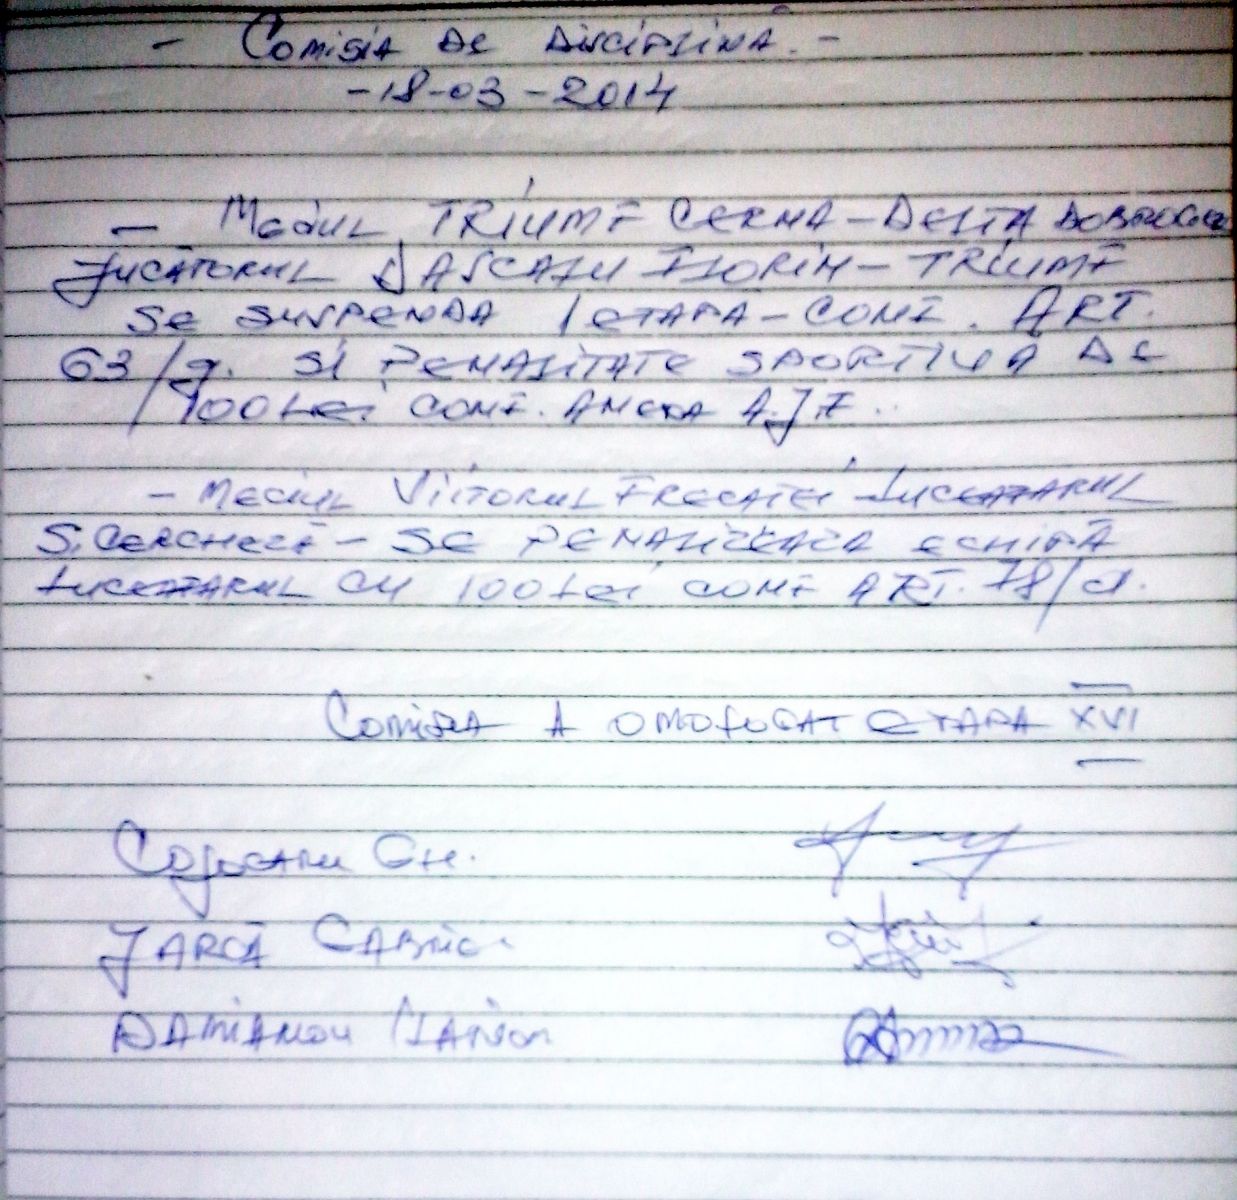 - Comisia de disciplină. -
- 18-03-2014
- Meciul Triumf Cerna - Delta Dobrogea
Jucătorul Dascalu Florin - Triumf
se suspenda 1 etapa - conf. Art.
63/g. si penalitate sportivă de
100 lei conf. anexa A.J.F..
- Meciul Viitorul Frecatei - Luceafarul
S. Cercheză - se penalizeaza echipa
Luceafarul cu 100 lei conf Art. 78/a.
Comisia a omologat etapa XVI
Cojocaru Gh.
Jarcă Gabric.
Damianov